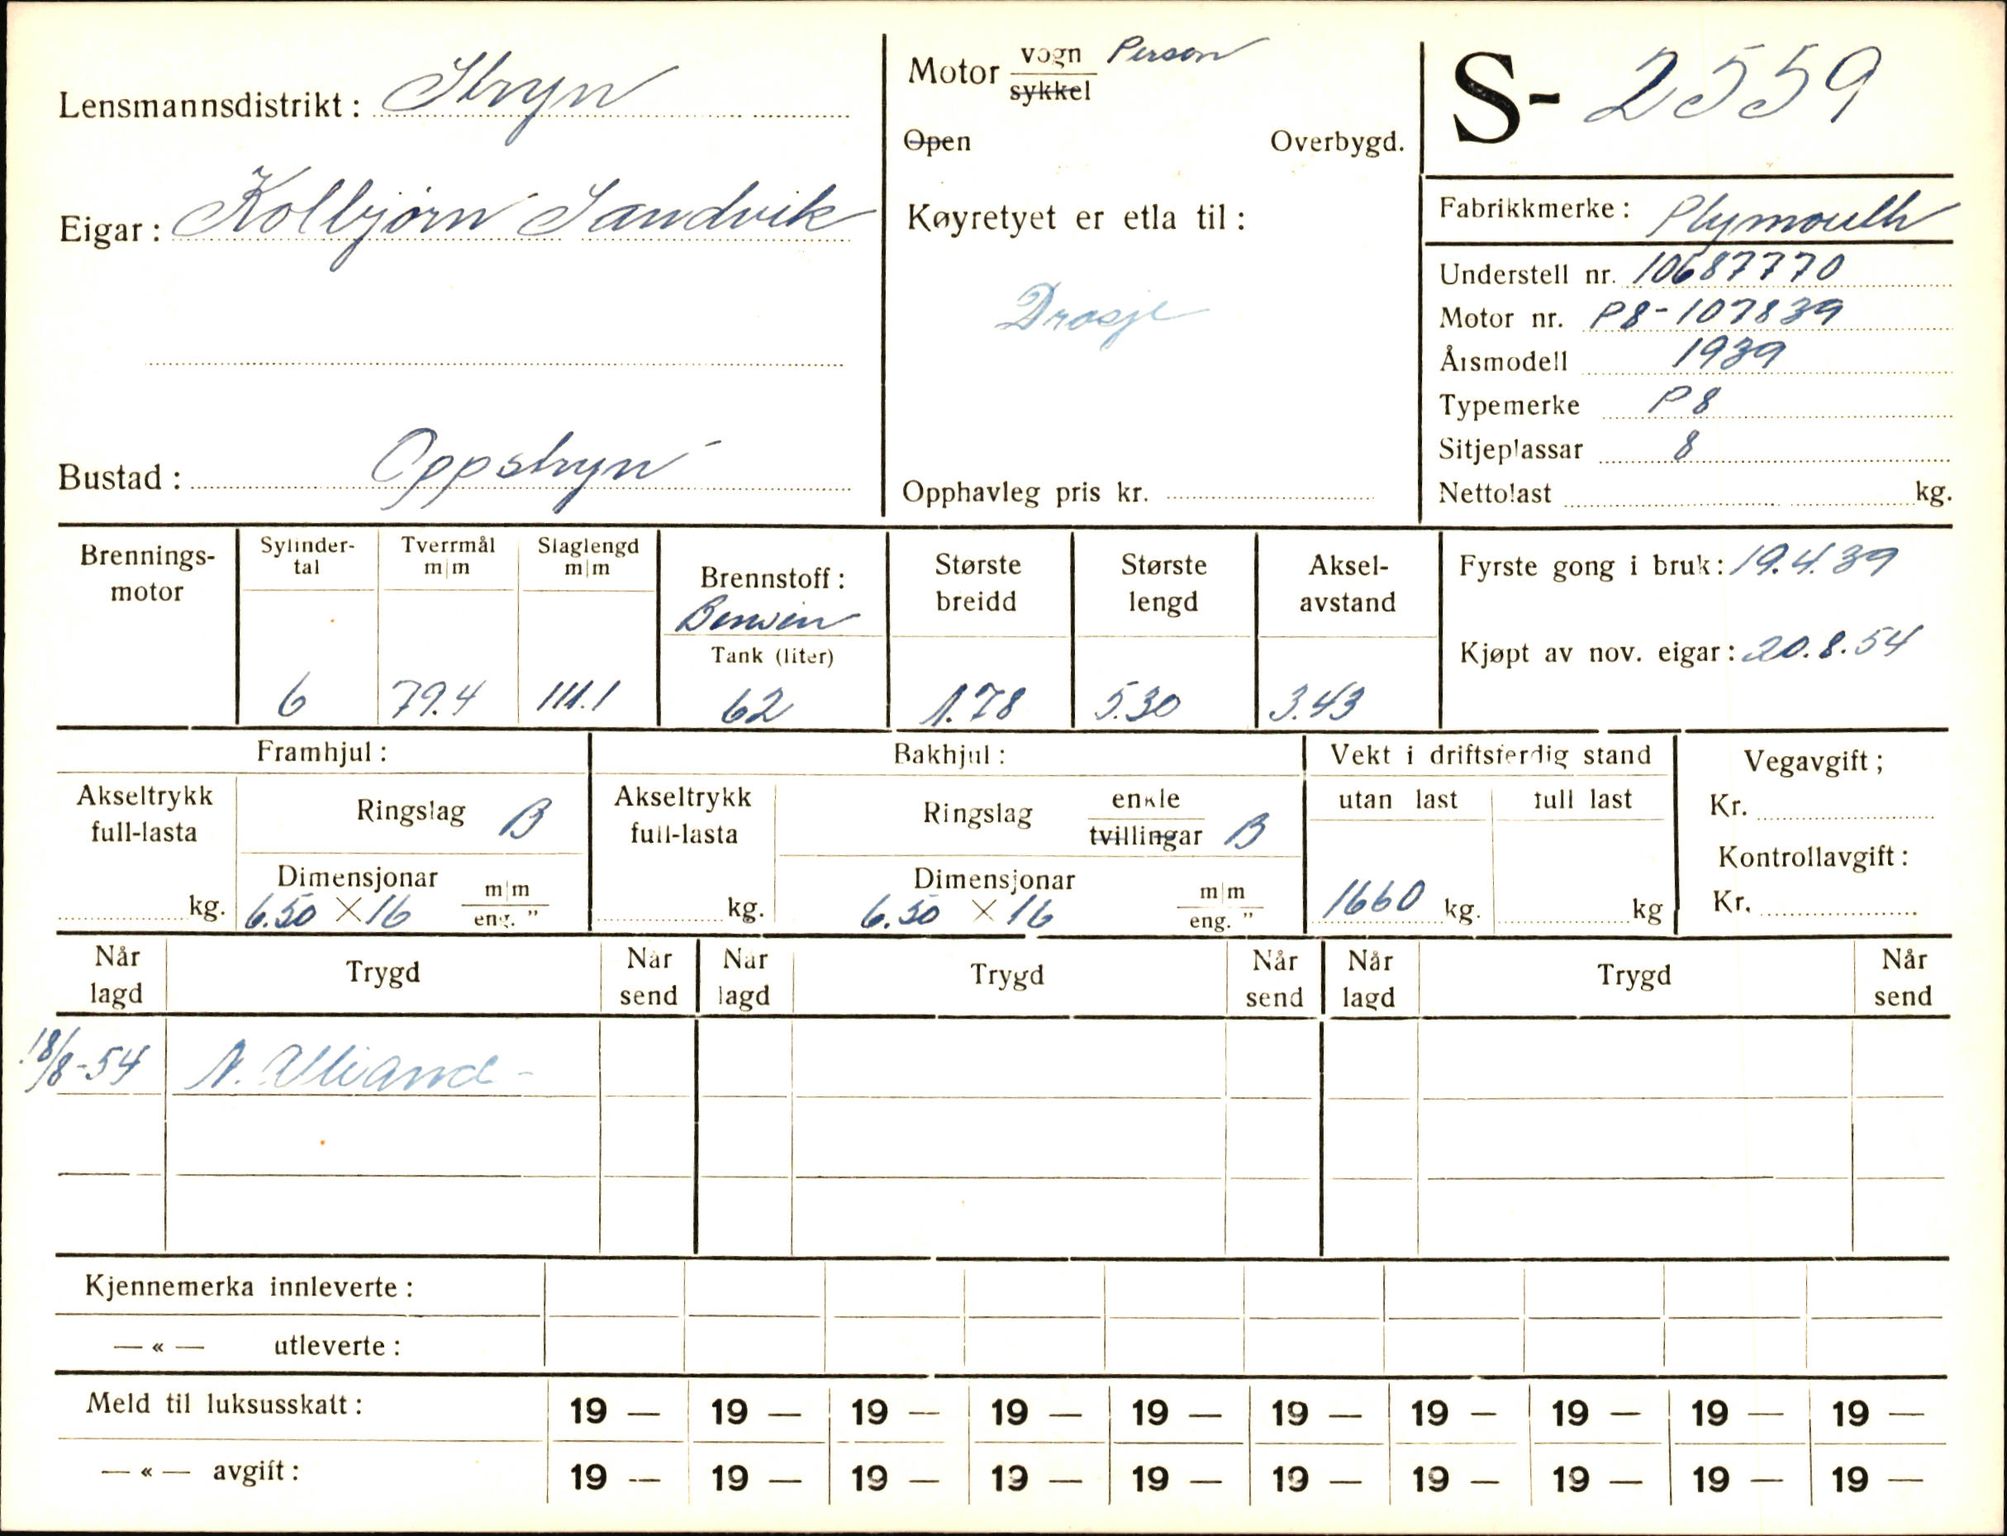 Lensmannsdistrikt: Stryn
Eigar: Kolbjørn Sandvik
Bustad: Oppstryn
Motor vogn Person
sykkel
Open Overbygd.
Køyretyet er etla til:
Drosje
Opphavleg pris kr.
S- 2559
Fabrikkmerke: Plymouth
Understell nr. 10687770
Motor nr. P8-107839
Årsmodell 1939
Typemerke P8
Sitjeplassar 8
Nettolast kg.
Brennings-
motor
Sylinder-
tal
6
Tverrmål
m|m
79.4
Slaglengd
m|m
111.1
Brennstoff:
Bensin
Tank (liter)
62
Største
breidd
1.78
Største
lengd
5.30
Aksel-
avstand
3.43
Fyrste gong i bruk: 19.4.39
Kjøpt av nov. eigar: 20.8.54
Framhjul:
Akseltrykk
full-lasta
kg.
Ringslag B
Dimensjonar m|m
6.50 × 16 eng. "
Bakhjul:
Akseltrykk
full-lasta
kg.
Ringslag enkle
tvillingar B
Dimensjonar m|m
6.50 × 16 eng. "
Vekt i driftsferdig stand
utan last full last
1660 kg. kg
Vegavgift;
Kr.
Kontrollavgift:
Kr.
Når
lagd Trygd Når
send Når
lagd Trygd Når
send Når
lagd Trygd Når
send
18/8-54 N.
Kjennemerka innleverte:
— « — utleverte:
Meld til luksusskatt: 19 — 19 — 19 — 19 — 19 — 19 — 19 — 19 — 19 — 19 —
— « — avgift: 19 — 19 — 19 — 19 — 19 — 19 — 19 — 19 — 19 — 19 —